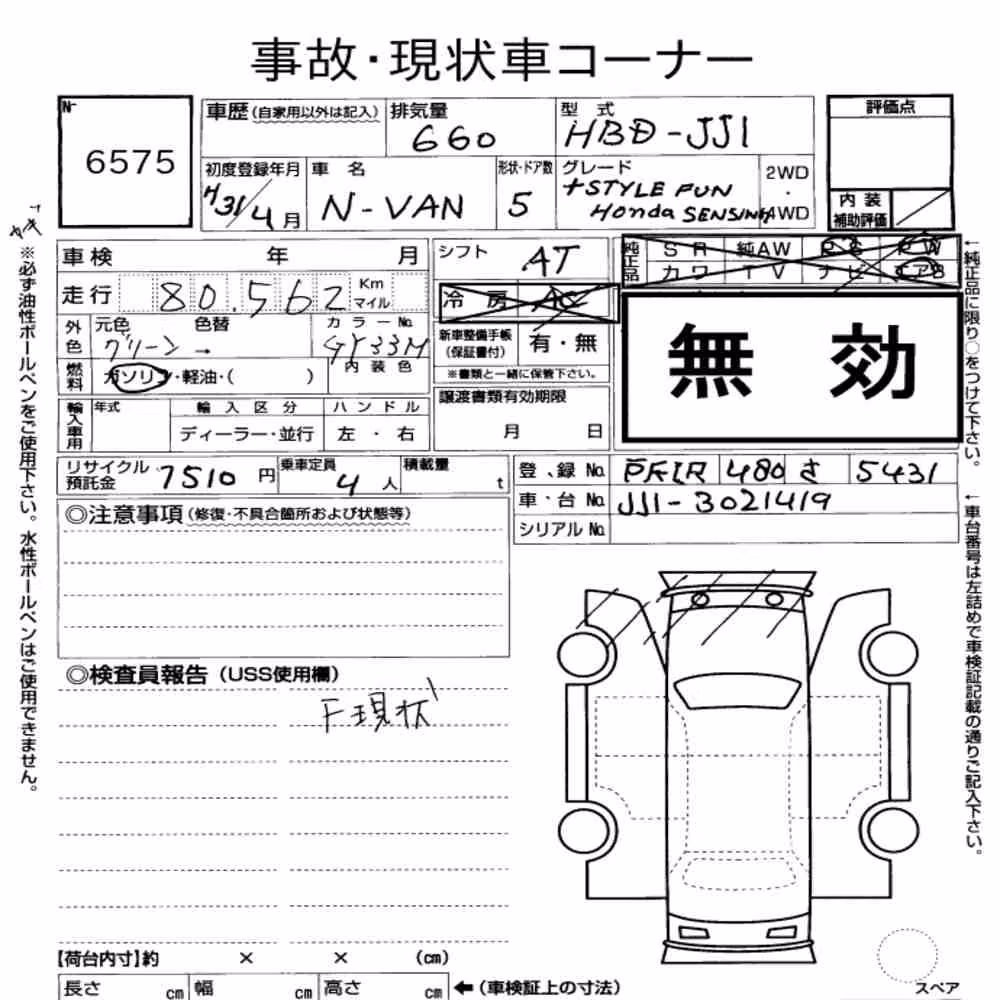 事故・現状車コーナー
№ 6575
車歴(自家用以外は記入) 排気量 660 型式 HBD-JJ1
初度登録年月 H31/4月 車名 N-VAN 形状・ドア数 5 グレード +STYLE FUN Honda SENSING 2WD・4WD
評価点
内装補助評価
車検 年 月
走行 80,562 Km マイル
外色 元色 グリーン 色替 → カラーNo.
内装色
燃料 ガソリン・軽油・( )
輸入車用 年式 輸入区分 ディーラー・並行 ハンドル 左・右
シフト AT
冷房 AC
新車整備手帳(保証書付) 有・無
※書類と一緒に保管下さい。
譲渡書類有効期限
月 日
純正品 SR 純AW PS PW
カワ TV ナビ エアB
無効
リサイクル預託金 7510円 乗車定員 4人 積載量 t
登録No. 480 さ 5431
車台No. JJ1-3021419
シリアルNo.
◎注意事項(修復・不具合箇所および状態等)
◎検査員報告(USS使用欄)
F現状
【荷台内寸】約 × × (cm)
長さ cm 幅 cm 高さ cm ←(車検証上の寸法)
スペア
※必ず油性ボールペンをご使用下さい。水性ボールペンはご使用できません。
←純正品に限り○をつけて下さい。
←車台番号は左詰めで車検証記載の通りご記入下さい。